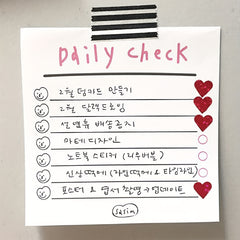 Daily Check
2월 덤카드 만들기
2월 달력드로잉
설 연휴 배송공지
마테 디자인
노트북 스티커 (리무버블)
신상떡메 (가로떡메 & 타임라인)
포스터 & 엽서 촬영 → 업데이트